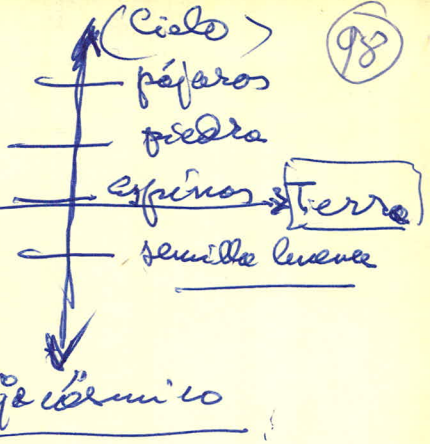 (Cielo) 98
pájaros
piedra
espinas Tierra
semilla buena